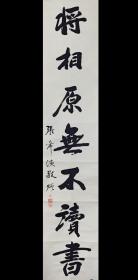 將相原無不讀書
張常
敬